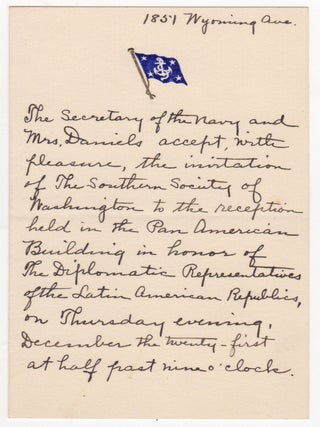 1851 Wyoming Ave.
The Secretary of the Navy and
Mrs. Daniels accept, with
pleasure, the invitation
of The Southern Society of
Washington to the reception
held in the Pan American
Building in honor of
The Diplomatic Representatives
of the Latin American Republics,
on Thursday evening,
December the twenty-first
at half past nine o'clock.